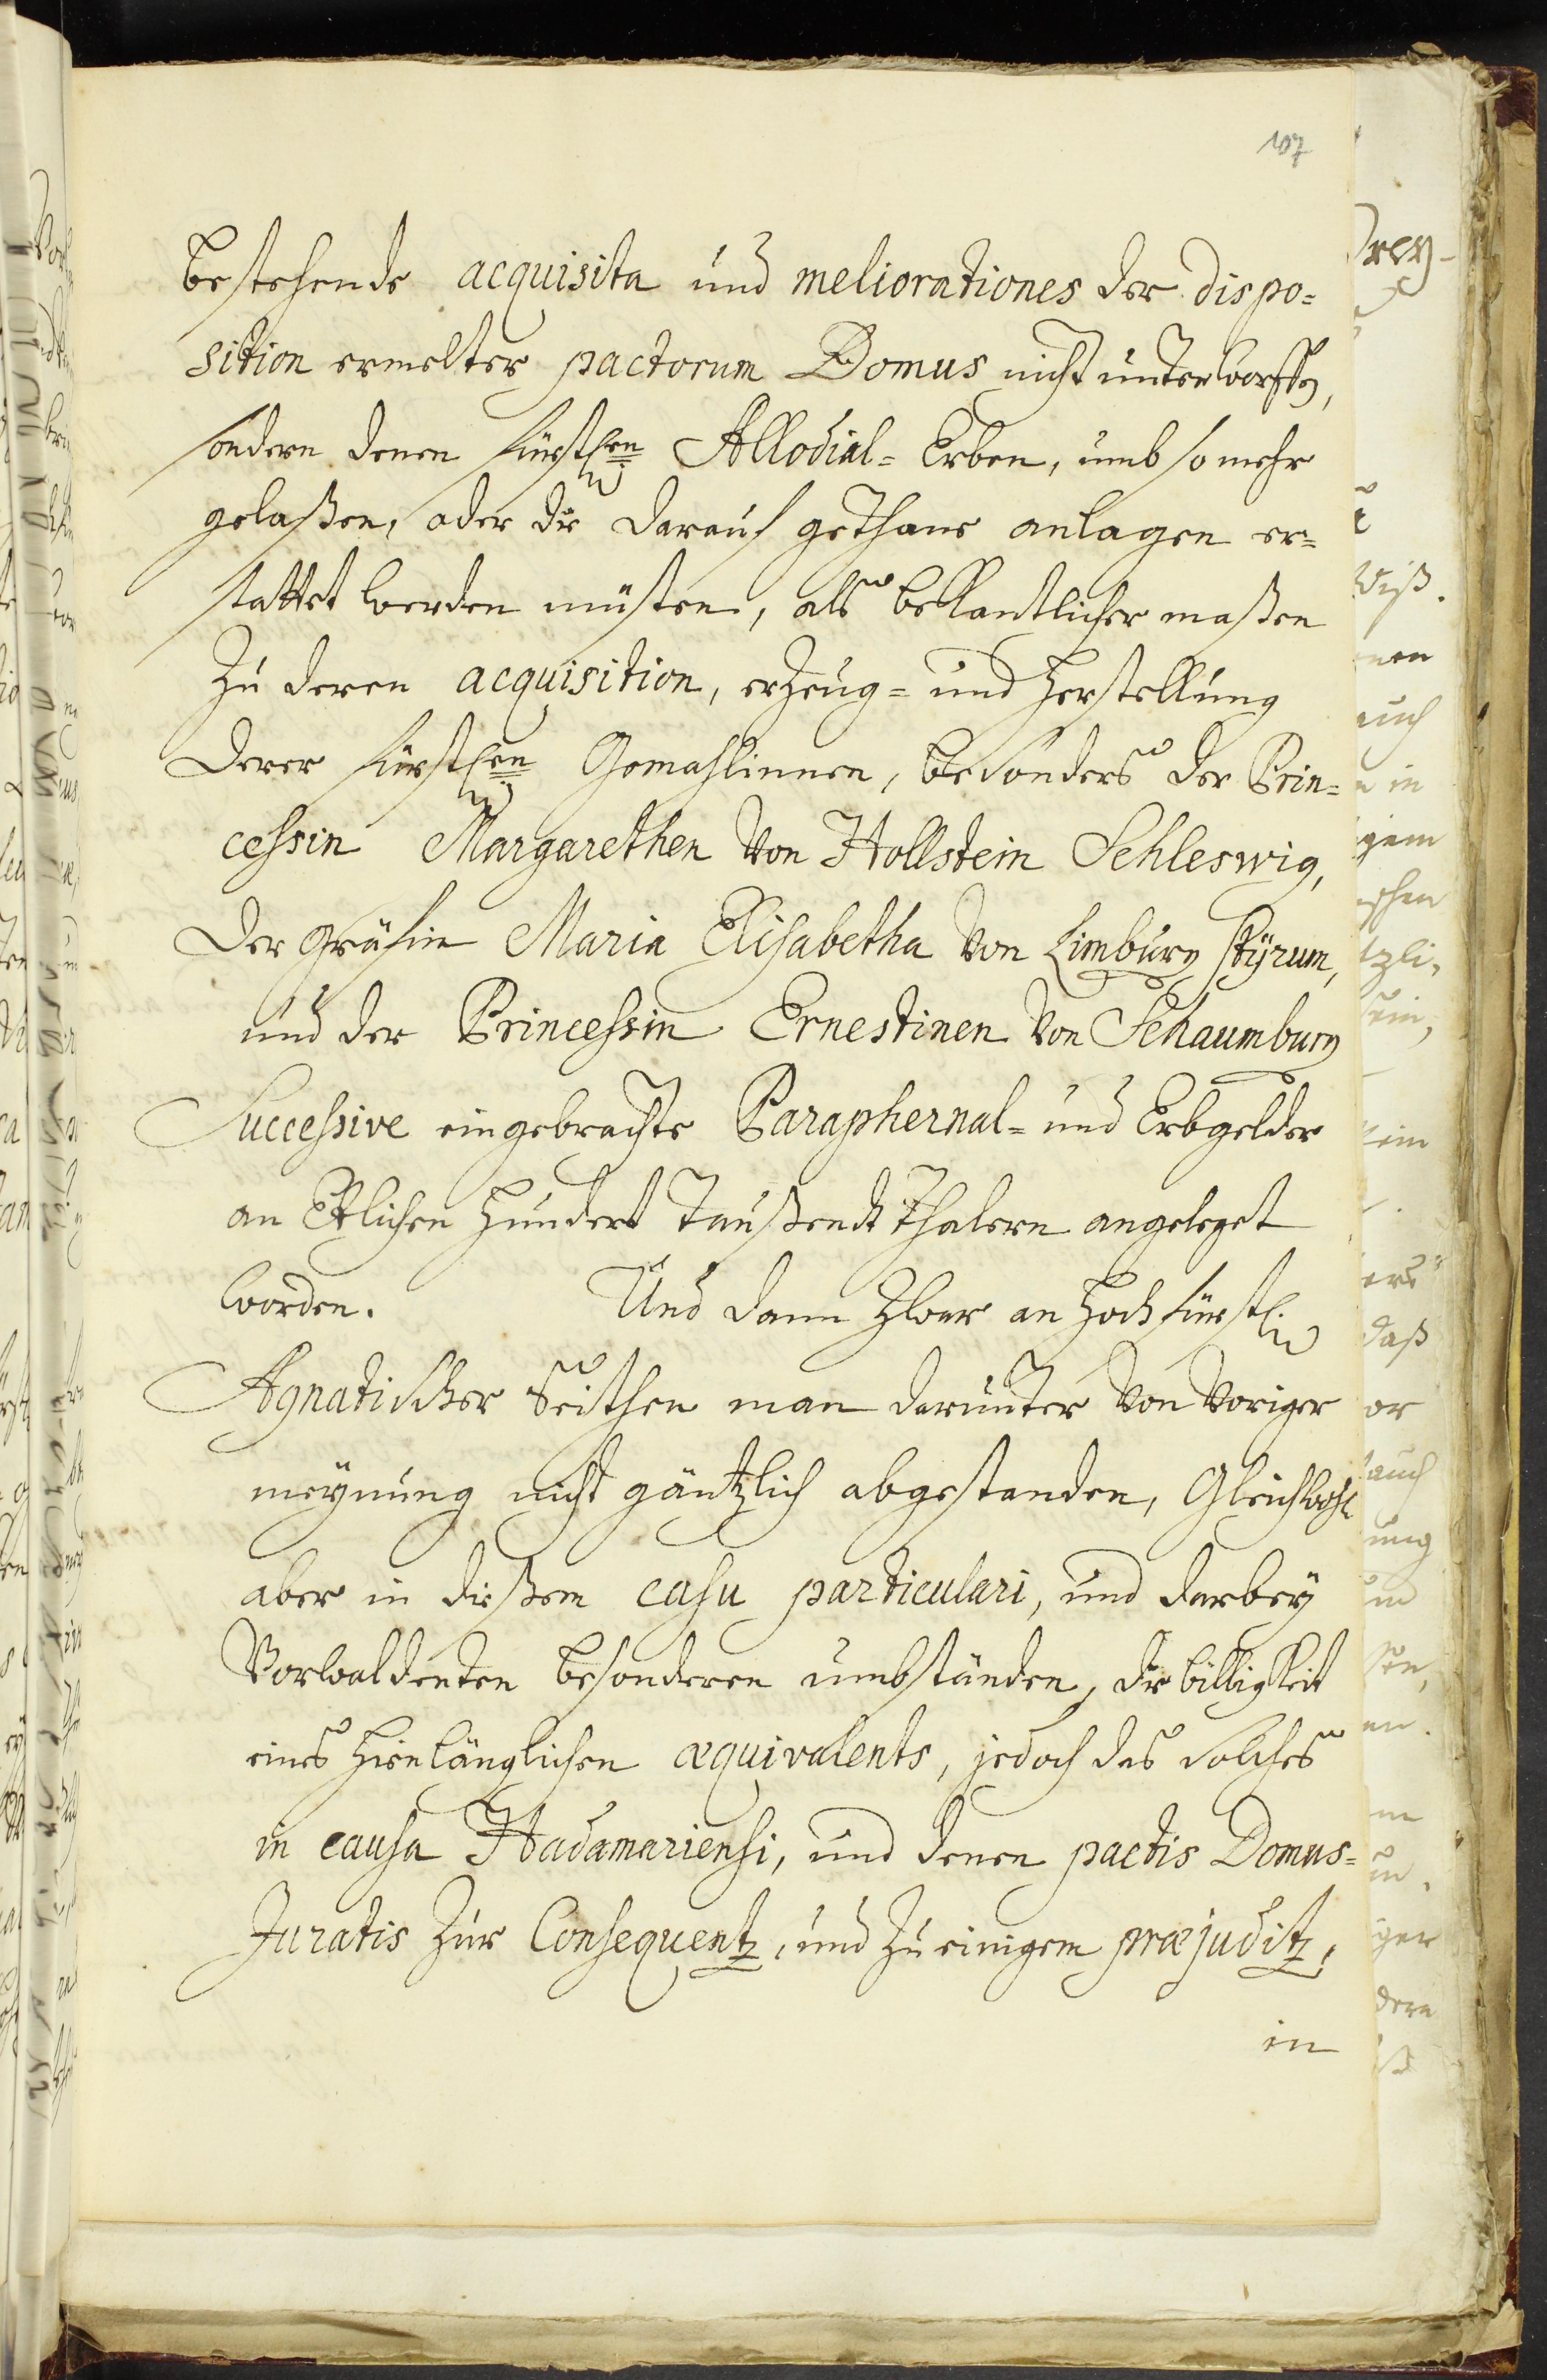 107
bestehende acquisita und meliorationes der dispo=
sition ermelter pactorum Domus nicht unterworffen,
sondern denen fürstlen Allodial= Erben, umb so mehr
gelaßen, oder die darauf gethane anlagen er=
stattet werden müsten, als bekantlicher maßen
Zu deren acquisition, erzeug= und Herstellung
derer fürstlen Gemahlinnen, besonders der Prin=
cessin Margarethen von Hollstein Schleswig,
der Gräfin Maria Elisabetha von Limburg Styrum,
und der Princessin Ernestinen von Schaumburg
Successive eingebrachte Paraphernal= und Erbgelder
an Etlichen Hundert Taußendt Thalern angeleget
worden. Und dann Zwar an Hochfürstl.
Agnatischer Seithen man darunter von voriger
meynung nicht gäntzlich abgestanden, Gleichwohl
aber in dießem casu particulari, und darbey
Vorwaldenten besonderen umbständen, die billigkeit
eines Hienlänglichen æquivalents, jedoch das solches
in causa Hadamariensi, und denen pactis Domus=
Juratis Zur Consequentz, und Zu einigem præjuditz,
in